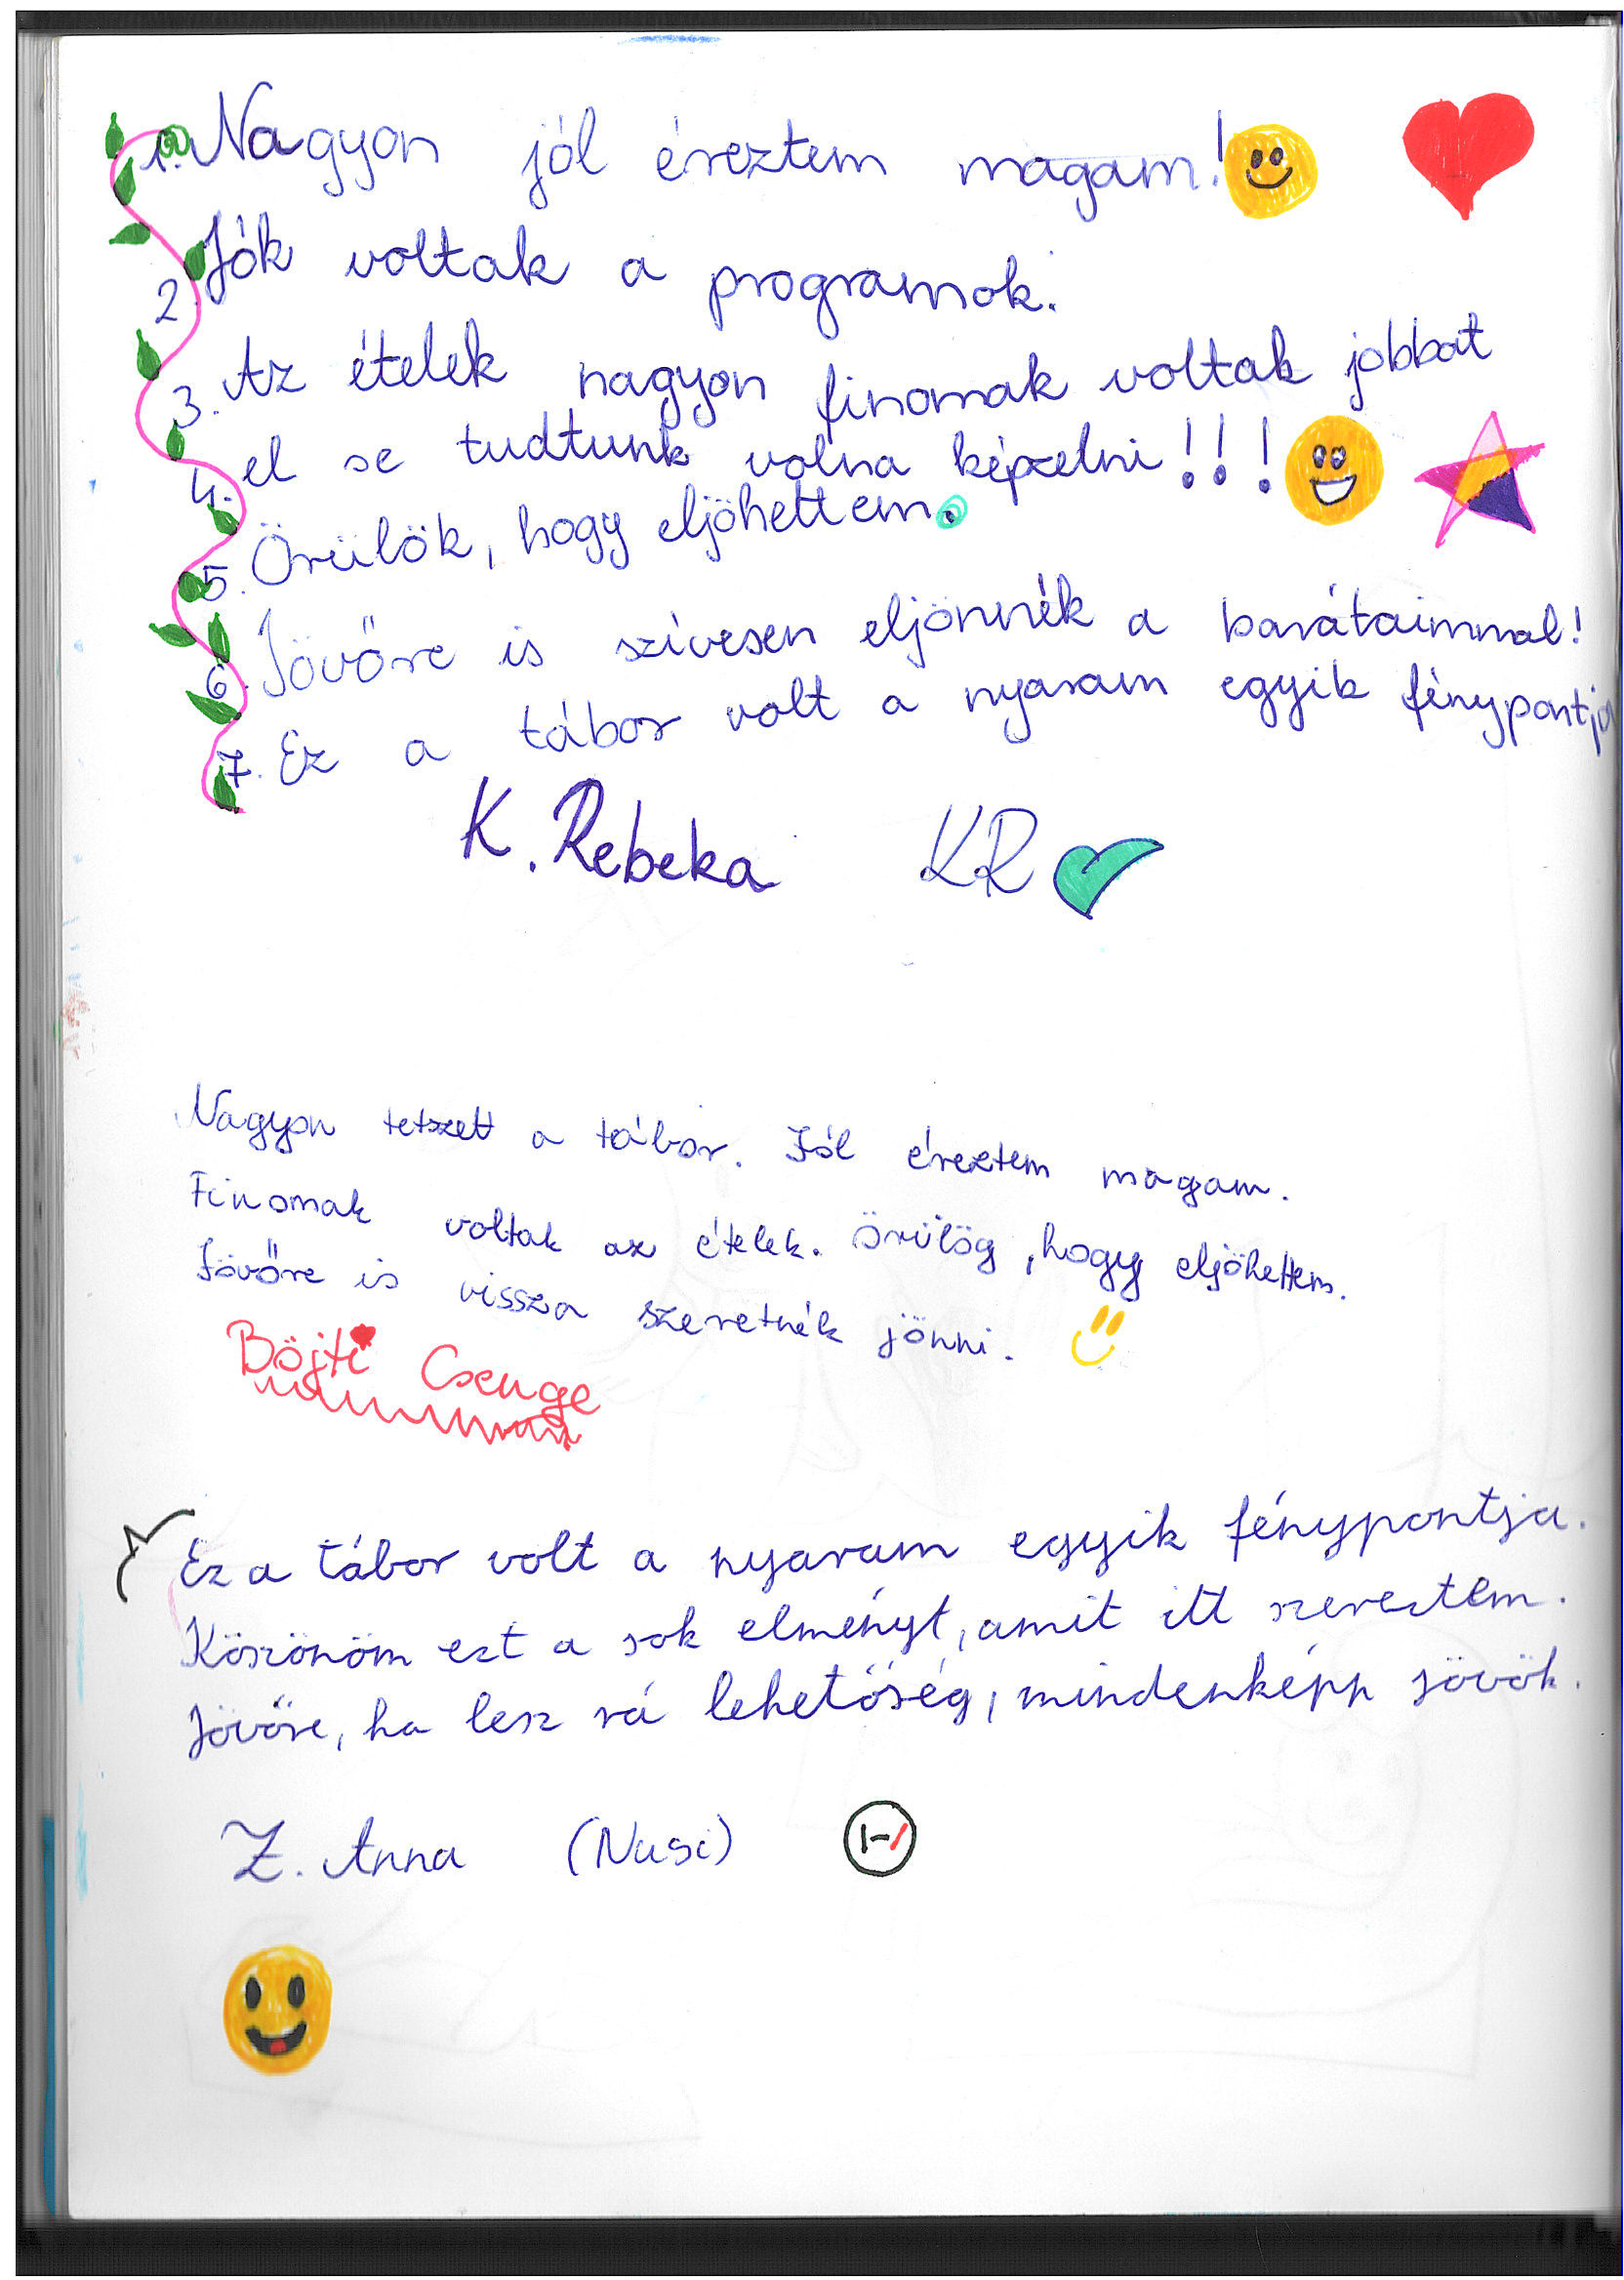 1. Nagyon jól éreztem magam!
2. Jók voltak a programok.
3. Az ételek nagyon finomak voltak jobbat
4. el se tudtunk volna képzelni!!!
5. Örülök, hogy eljöhettem.
6. Jövőre is szívesen eljönnék a barátaimmal!
7. Ez a tábor volt a nyaram egyik fénypontja
K. Rebeka KR
Nagyon tetszett a tábor. Jól éreztem magam.
Finomak voltak az ételek. Örülög, hogy eljöhettem.
Jövőre is vissza szeretnék jönni.
Böjti Csenge
Ez a tábor volt a nyaram egyik fénypontja.
Köszönöm ezt a sok elményt, amit itt szereztem.
Jövőre, ha lesz rá lehetőség, mindenképp jövök.
Z. Anna (Nusi)